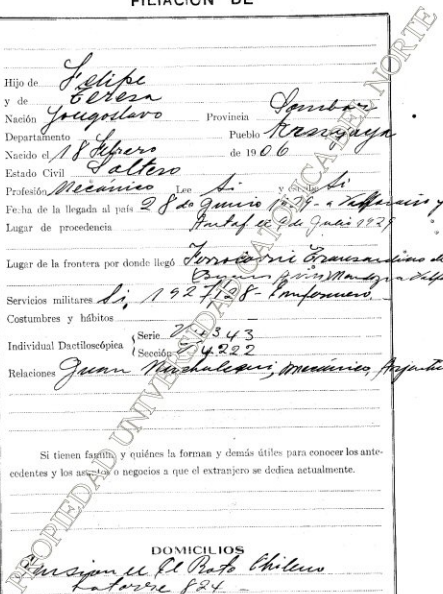 FILIACIÓN DE
Hijo de Felipe
y de Teresa
Nación Yougoslavo Provincia Sombor
Departamento Pueblo
Nacido el 18 Febrero de 1906
Estado Civil Soltero
Profesión Mecánico Lee Si y escribe Si
Fecha de la llegada al país 28 de Junio 1929 - a Valparaiso y
Lugar de procedencia Antof. el 9 de Julio 1929
Lugar de la frontera por donde llegó Ferrocarril Transandino de
Buenos Mendoza a Valp
Servicios militares Si, 1927/28 - Enfermero
Costumbres y hábitos —
Individual Dactiloscópica Serie 3 43
Sección 4222
Relaciones Juan mecánico,
Si tienen familia y quiénes la forman y demás útiles para conocer los ante-
cedentes y los asuntos o negocios a que el extranjero se dedica actualmente.
DOMICILIOS
Pension el El Roto Chileno
Latorre 824 -
PROPIEDAD UNIVERSIDAD CATOLICA DEL NORTE